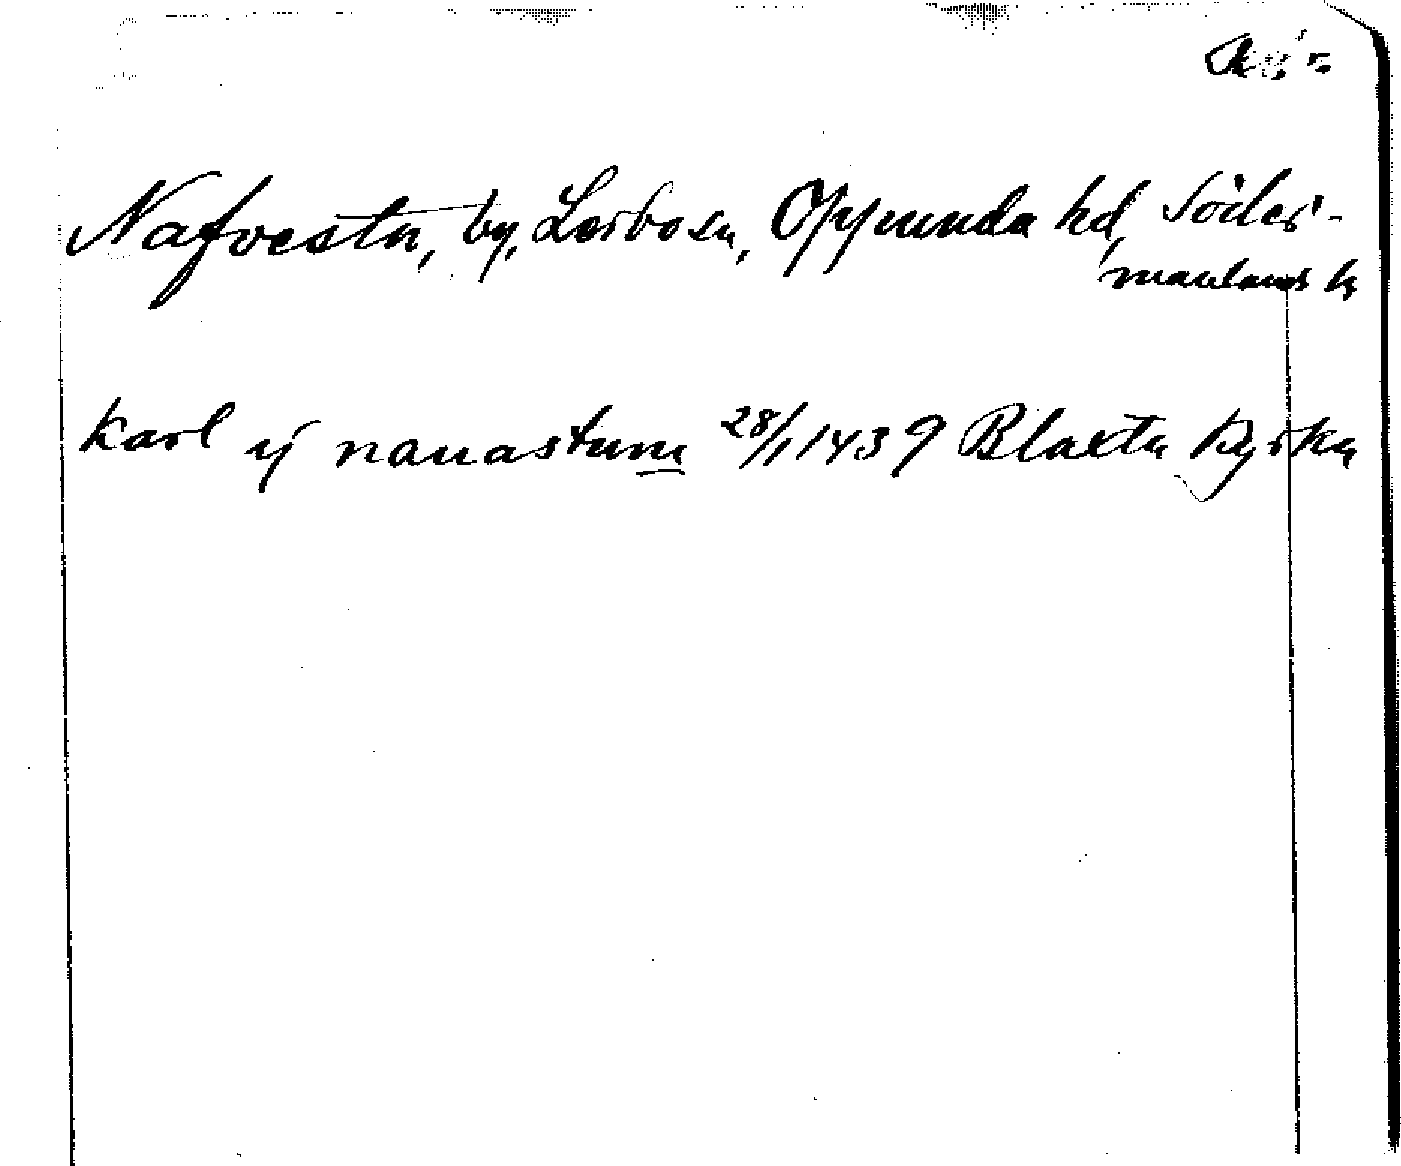 Nafvesta, by, Lerbosn, Oppunda hd, Söder-
manlands l.
karl ij nanastum 28/1 1439 Blaxta kyrka